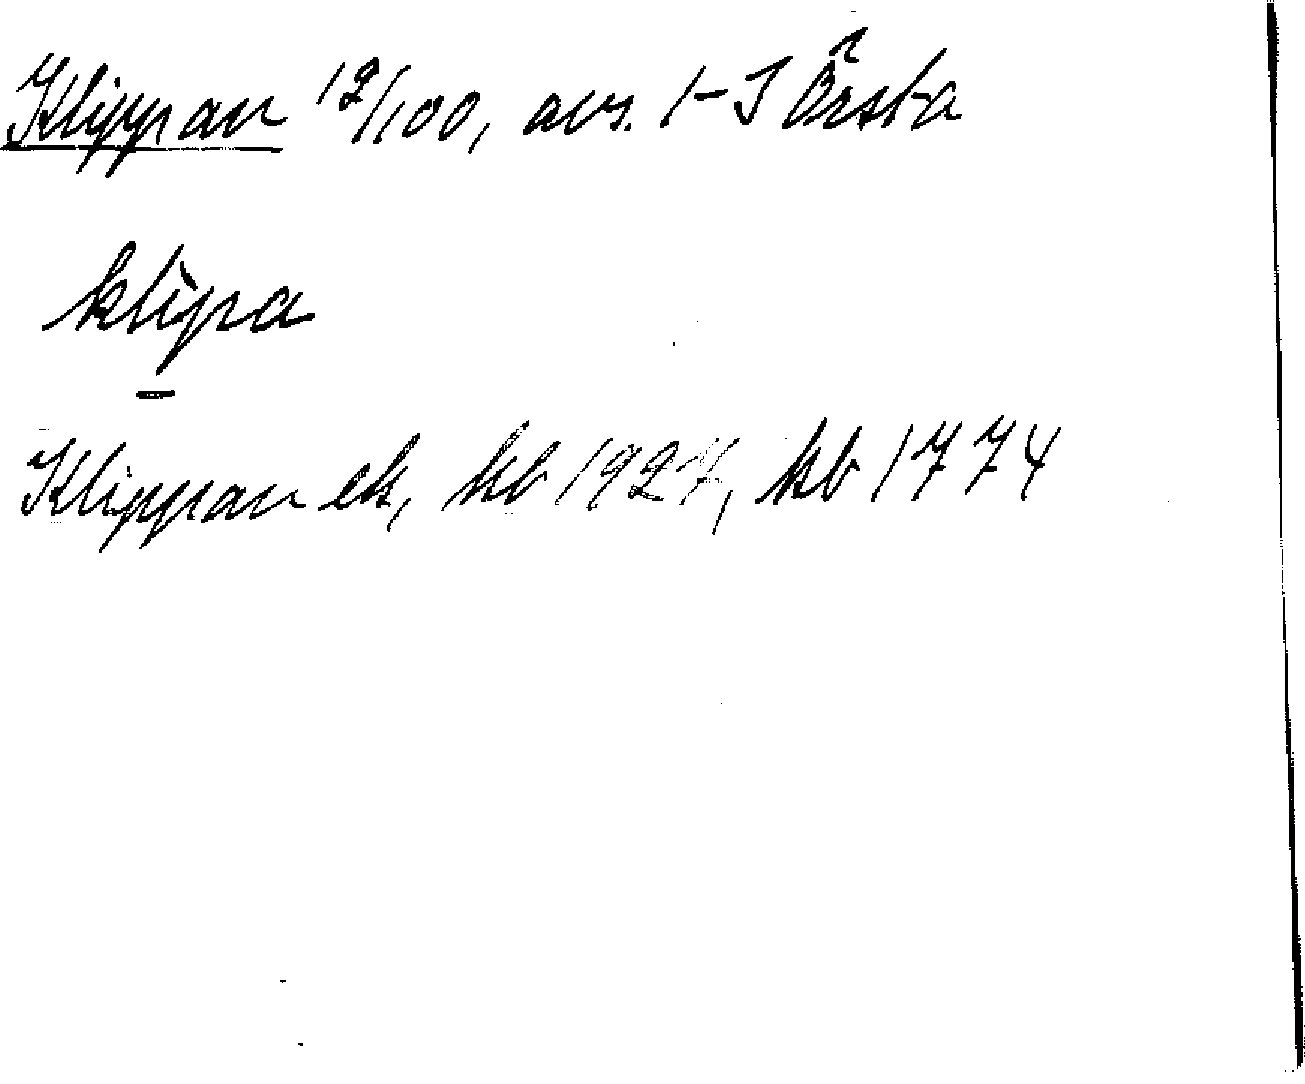 Klippan 12/100, avs. 1-3 Örsta
klìpa
Klippan ek, kb 1927, kb 1774